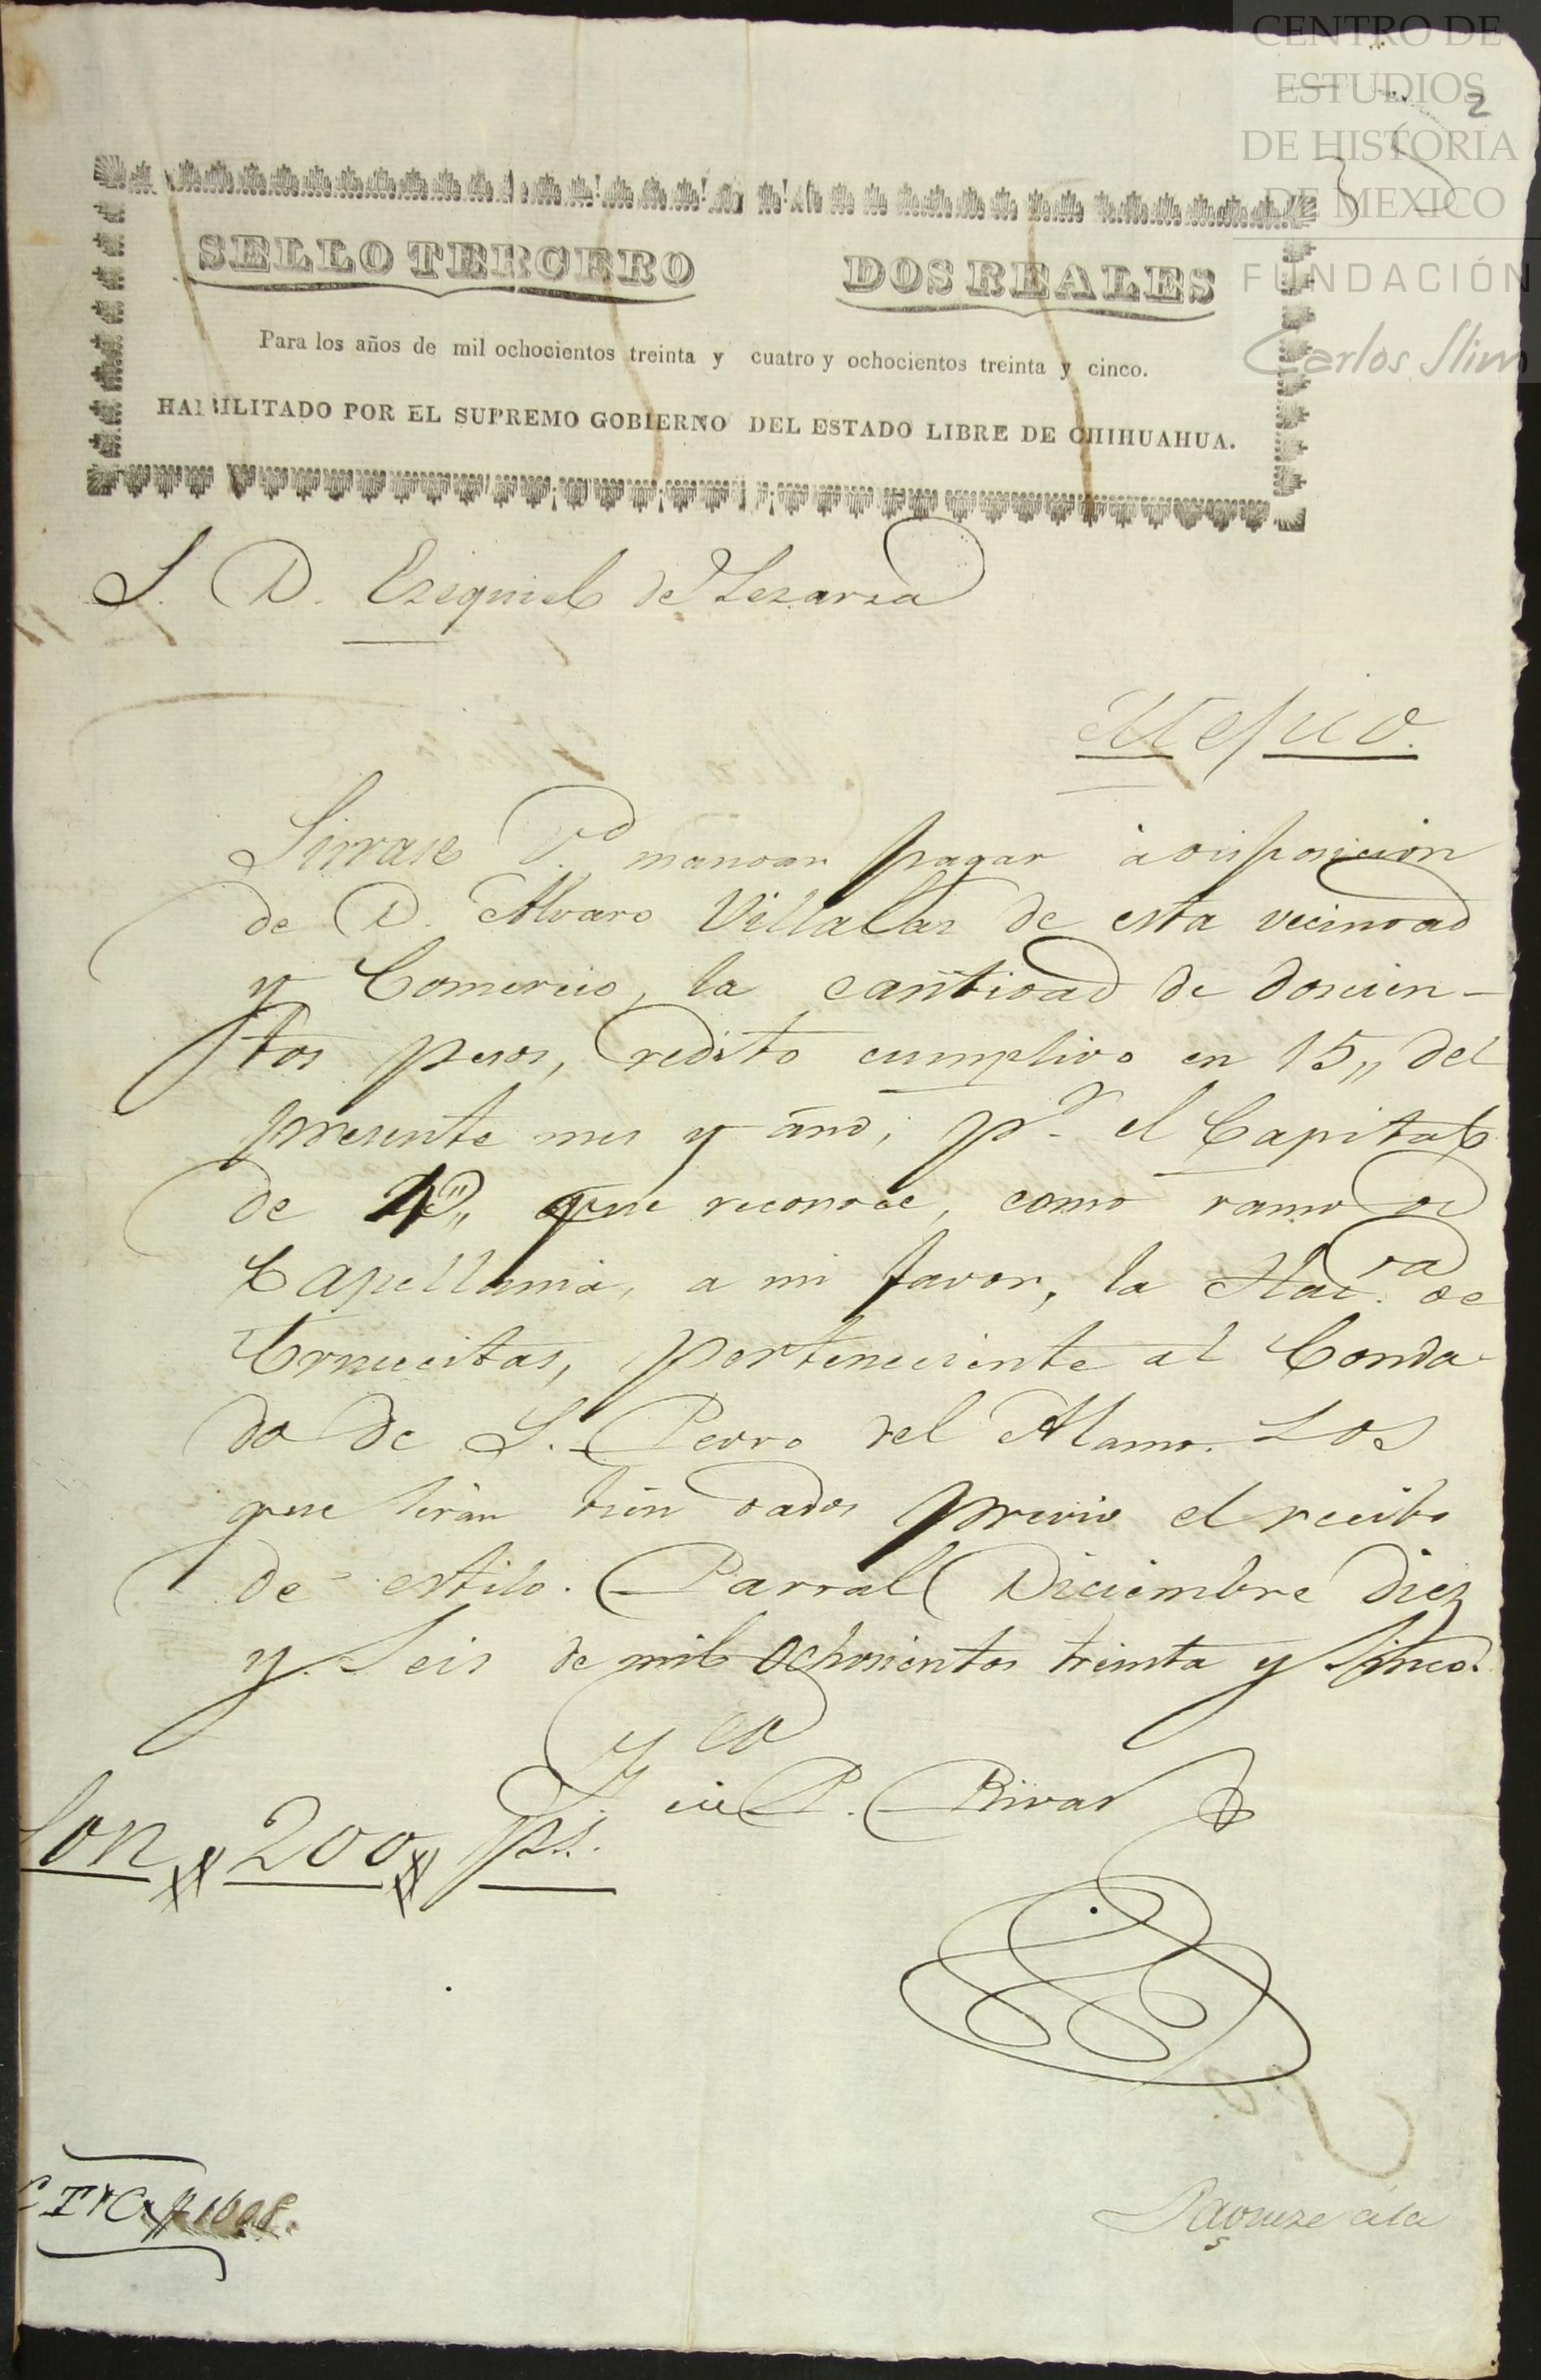 CENTRO DE
ESTUDIOS
DE HISTORIA
DE MEXICO
FUNDACIÓN
Carlos Slim
2
SELLO TERCERO DOS REALES
Para los años de mil ochocientos treinta y cuatro y ochocientos treinta y cinco.
HABILITADO POR EL SUPREMO GOBIERNO DEL ESTADO LIBRE DE CHIHUAHUA.
S. D. Ezequiel de Lezarza
Mejico.
Sirvase Vd mandar pagar à disposicion
de D. Alvaro Villalas de esta vecindad
y Comercio, la cantidad de doscien-
tos pesos, redito cumplido en 15,, del
presente mes y año, pr. el Capital
de que reconoce, como ramo de
Capellania, a mi favor, la Hacda. de
Crucecitas, perteneciente al Conda
do de S. Pedro del Alamo. Los
que serán bien dados previo el recibo
de estilo. Parral Diciembre diez
y Seis de mil ochosientos treinta y Sinco.
P. Rivas
Son 200 ps.